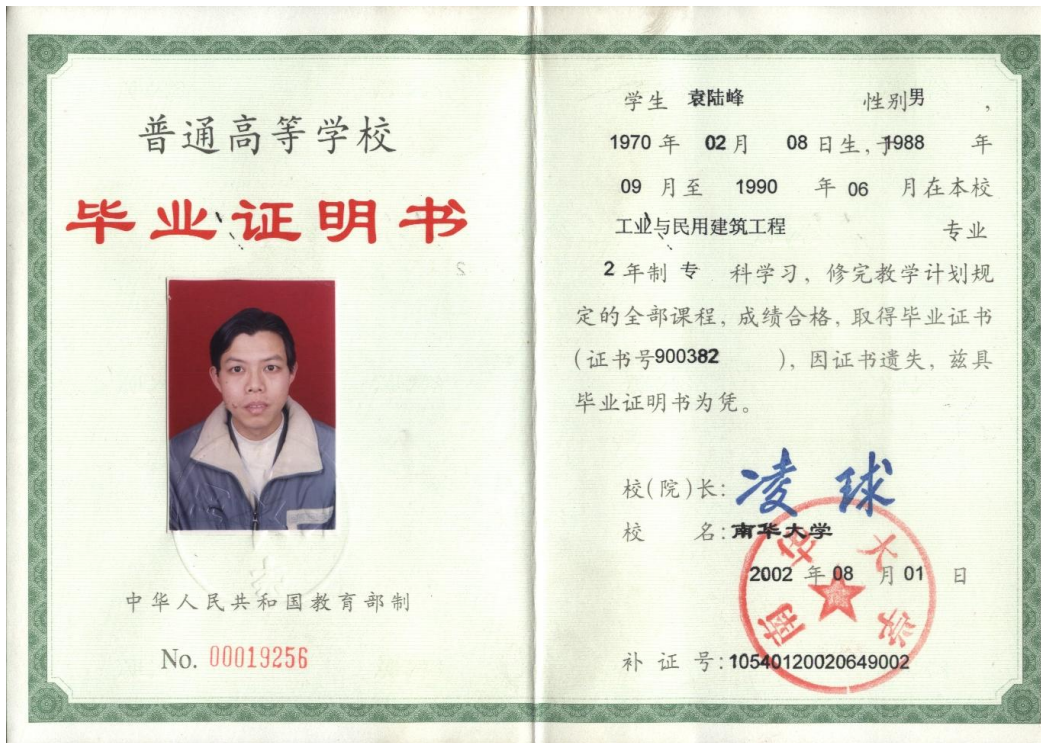 普通高等学校
毕业证明书
中华人民共和国教育部制
No. 00019256
学生 袁陆峰 性别男,
1970 年 02 月 08 日生,于1988 年
09 月至 1990 年 06 月在本校
工业与民用建筑工程 专业
2 年制 专 科学习,修完教学计划规
定的全部课程,成绩合格,取得毕业证书
(证书号900382 ),因证书遗失,兹具
毕业证明书为凭。
校(院)长: 凌球
校 名: 南华大学
2002 年 08 月 01 日
南华大学
补 证 号: 10540120020649002